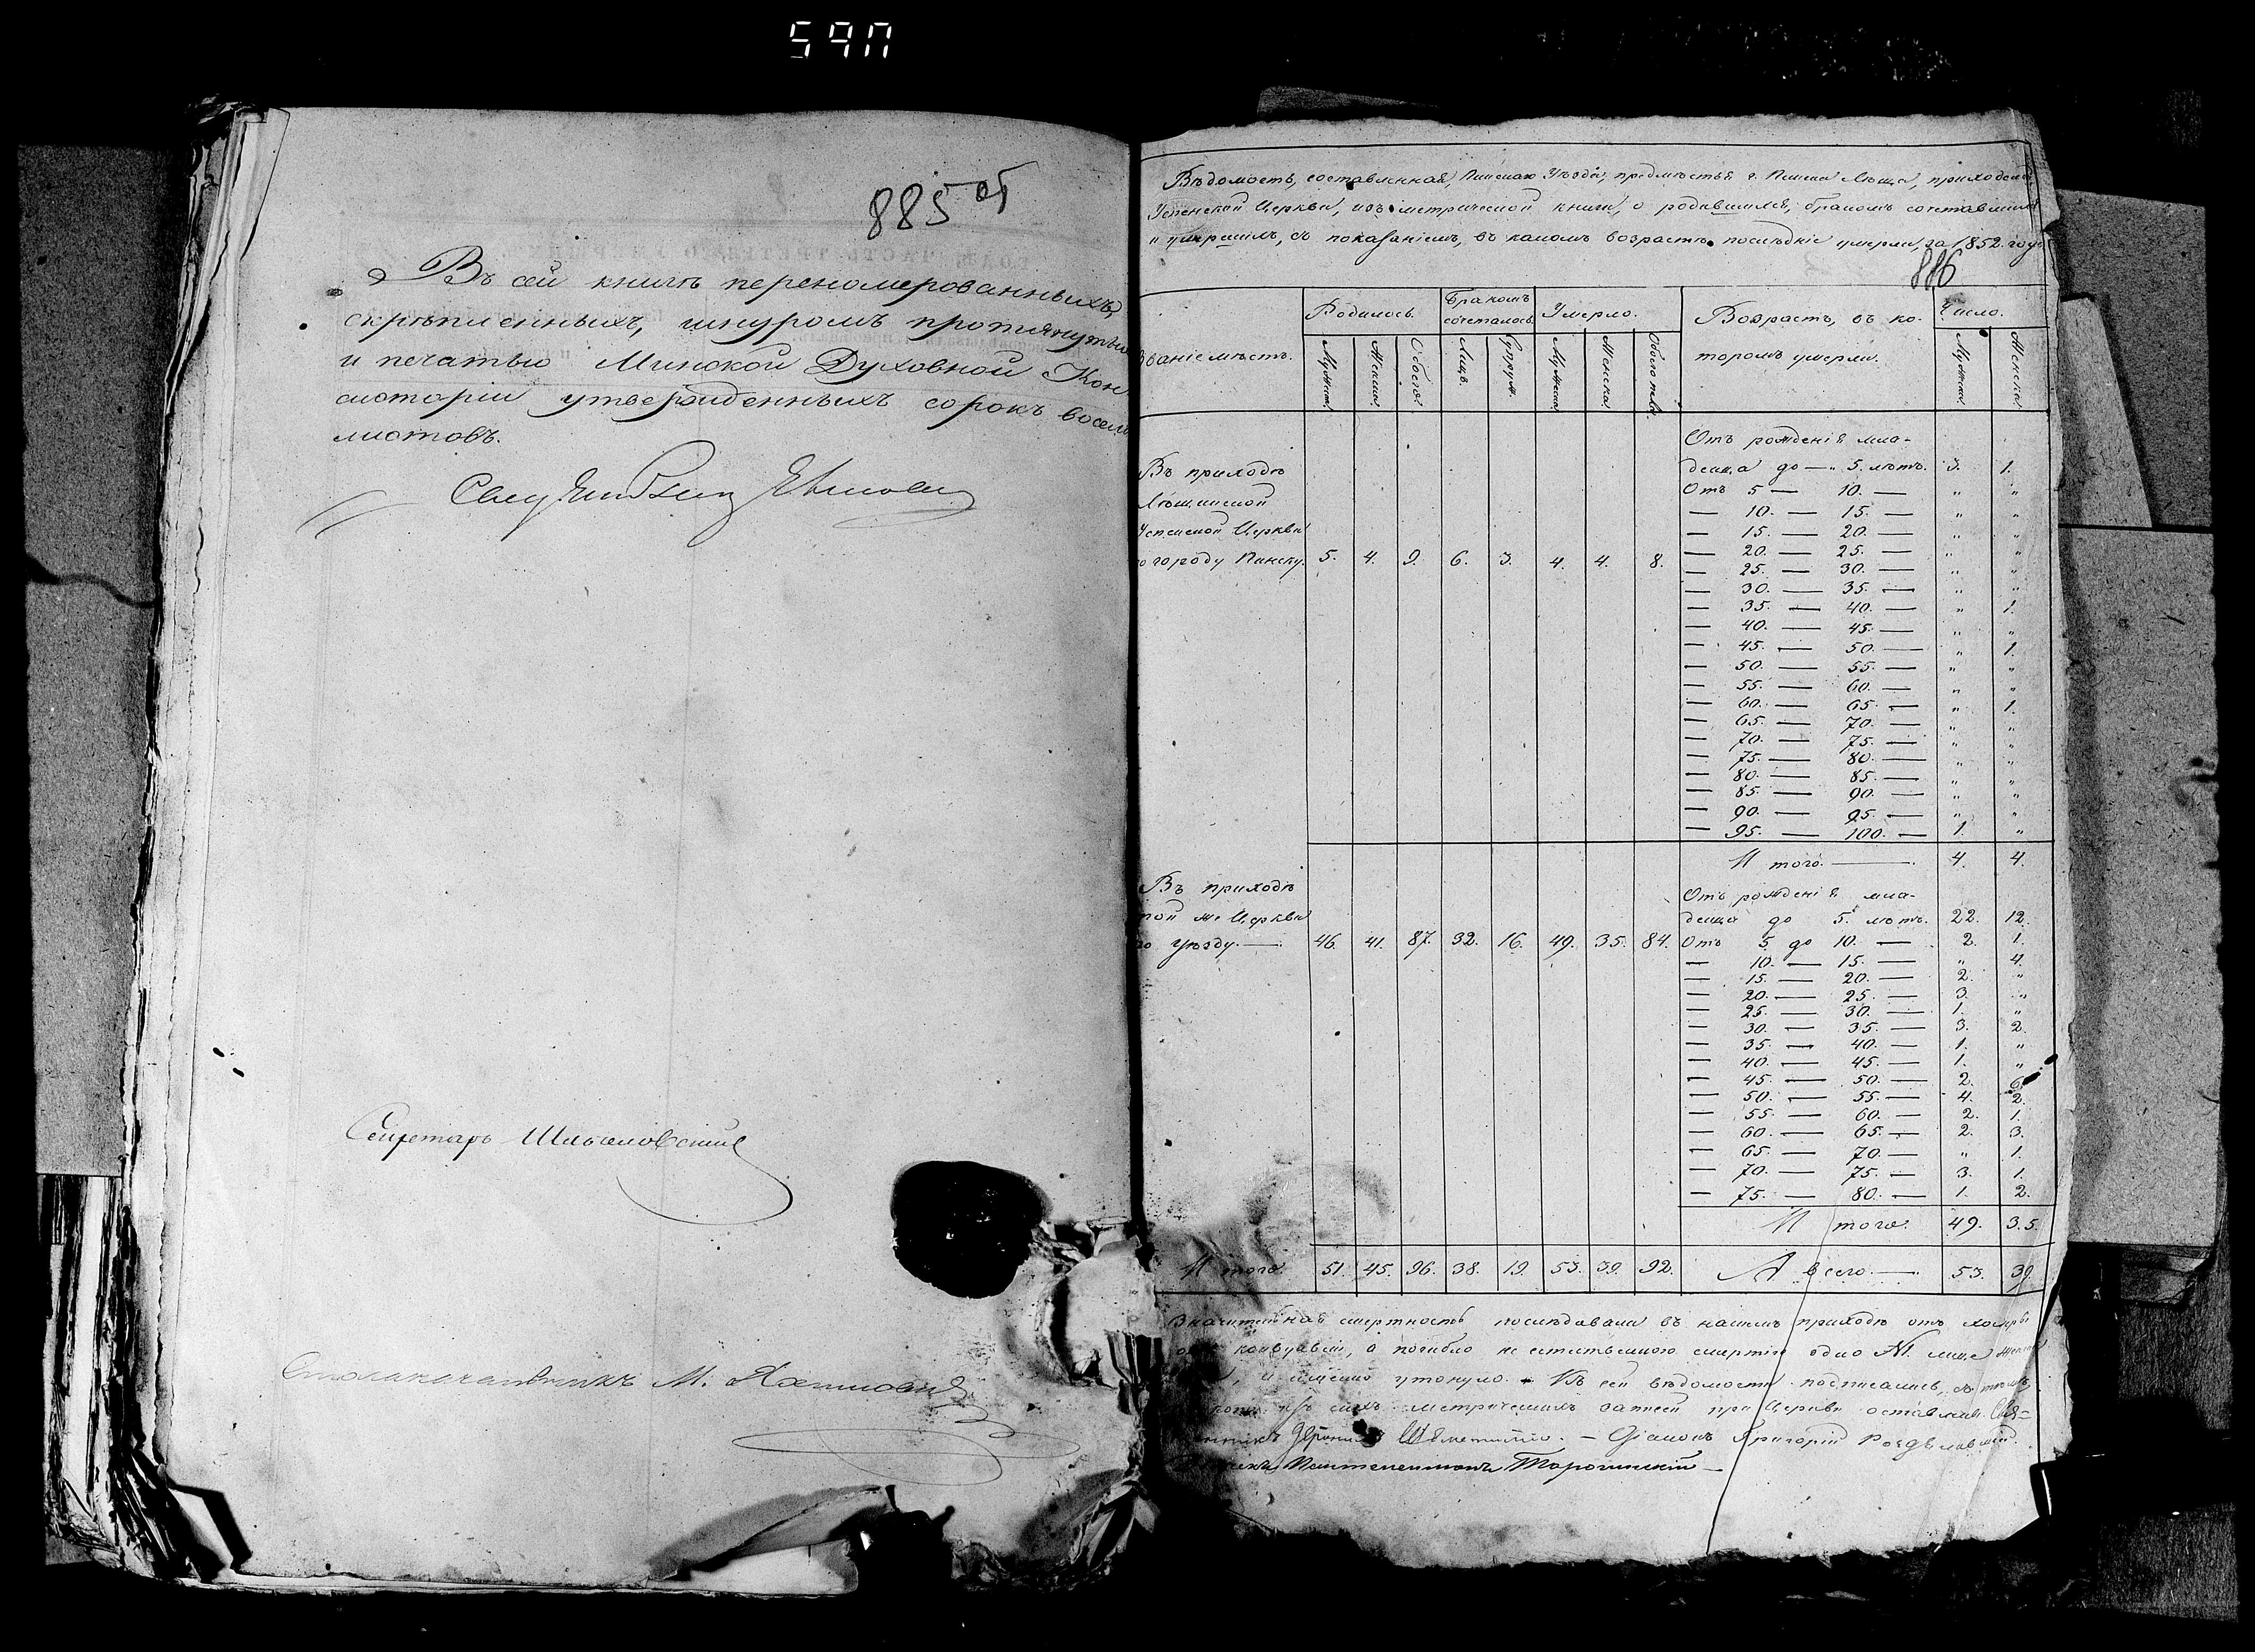 54П
885 об
Въ сей книгѣ переномерованныхъ,
скрѣпленныхъ, шнуромъ протянутых
и печатью Минской Духовной Кон
систоріи утвержденныхъ сорокъ восем
листовъ.
Секретарь
Столоначальникъ М.
Вѣдомость, составленная, Пинскаго Уѣзда, предмѣстья г. Пинска Лѣща, приходской
Успенской Церкви, изъ метрической книги, о родившихся, бракомъ сочетавшихся
и умершихъ, съ показаніемъ, въ какомъ возрастѣ послѣдніе умерли, за 1852. годъ
886
званіе мѣстъ. Родилось. Бракомъ сочеталось. Умерло. Возрастъ, въ ко- Число.
Мужска. Женска. Обоего. Лицъ. Супруж. Мужска. Женска. Обоего пола. торомъ умерли. Мужска. Женска.
Отъ рожденія мла-
Въ приходѣ денца до — 5. лѣтъ. 3. 1.
Лѣщинской Отъ 5 — 10. — " "
— 10. — 15. — " "
Успенской Церкви — 15. — 20. — " "
— 20. — 25. — " "
по городу Пинску. 5. 4. 9. 6. 3. 4. 4. 8. — 25. — 30. — " "
— 30. — 35. — " "
— 35. — 40. — " 1.
— 40. — 45. — " "
— 45. — 50. — " 1.
— 50. — 55. — " "
— 55. — 60. — " "
— 60. — 65. — " 1.
— 65. — 70. — " "
— 70. — 75. — " "
— 75. — 80. — " "
— 80. — 85. — " "
— 85. — 90. — " "
— 90. — 95. — " "
— 95. — 100. — 1. "
И того. — 4. 4.
Въ приходѣ Отъ рожденія мла-
той же Церкви денца до 5. лѣтъ. 22. 12.
по уѣзду. — 46. 41. 87. 32. 16. 49. 35. 84. Отъ 5 до 10. — 2. 1.
— 10. — 15. — " 4.
— 15. — 20. — 2. "
— 20. — 25. — 3. "
— 25. — 30. — 1. "
— 30. — 35. — 3. 2.
— 35. — 40. — 1. "
— 40. — 45. — 1. "
— 45. — 50. — 2. 6.
— 50. — 55. — 4. 2.
— 55. — 60. — 2. 1.
— 60. — 65. — 2. 3.
— 65. — 70. — " 1.
— 70. — 75. — 3. 1.
— 75. — 80. — 1. 2.
И того. 49. 35.
И того. 51. 45. 96. 38. 19. 53. 39. 92. А всего. — 53. 39
Значительная смертность послѣдовала въ нашемъ приходѣ отъ холеры
а погибло не естественною смертію одно лице
и именно утонуло. — Къ сей вѣдомости подписались, съ тѣмъ,
копія съ сихъ метрическихъ записей при Церкви оставлена. Свя=
— Діаконъ Григорій